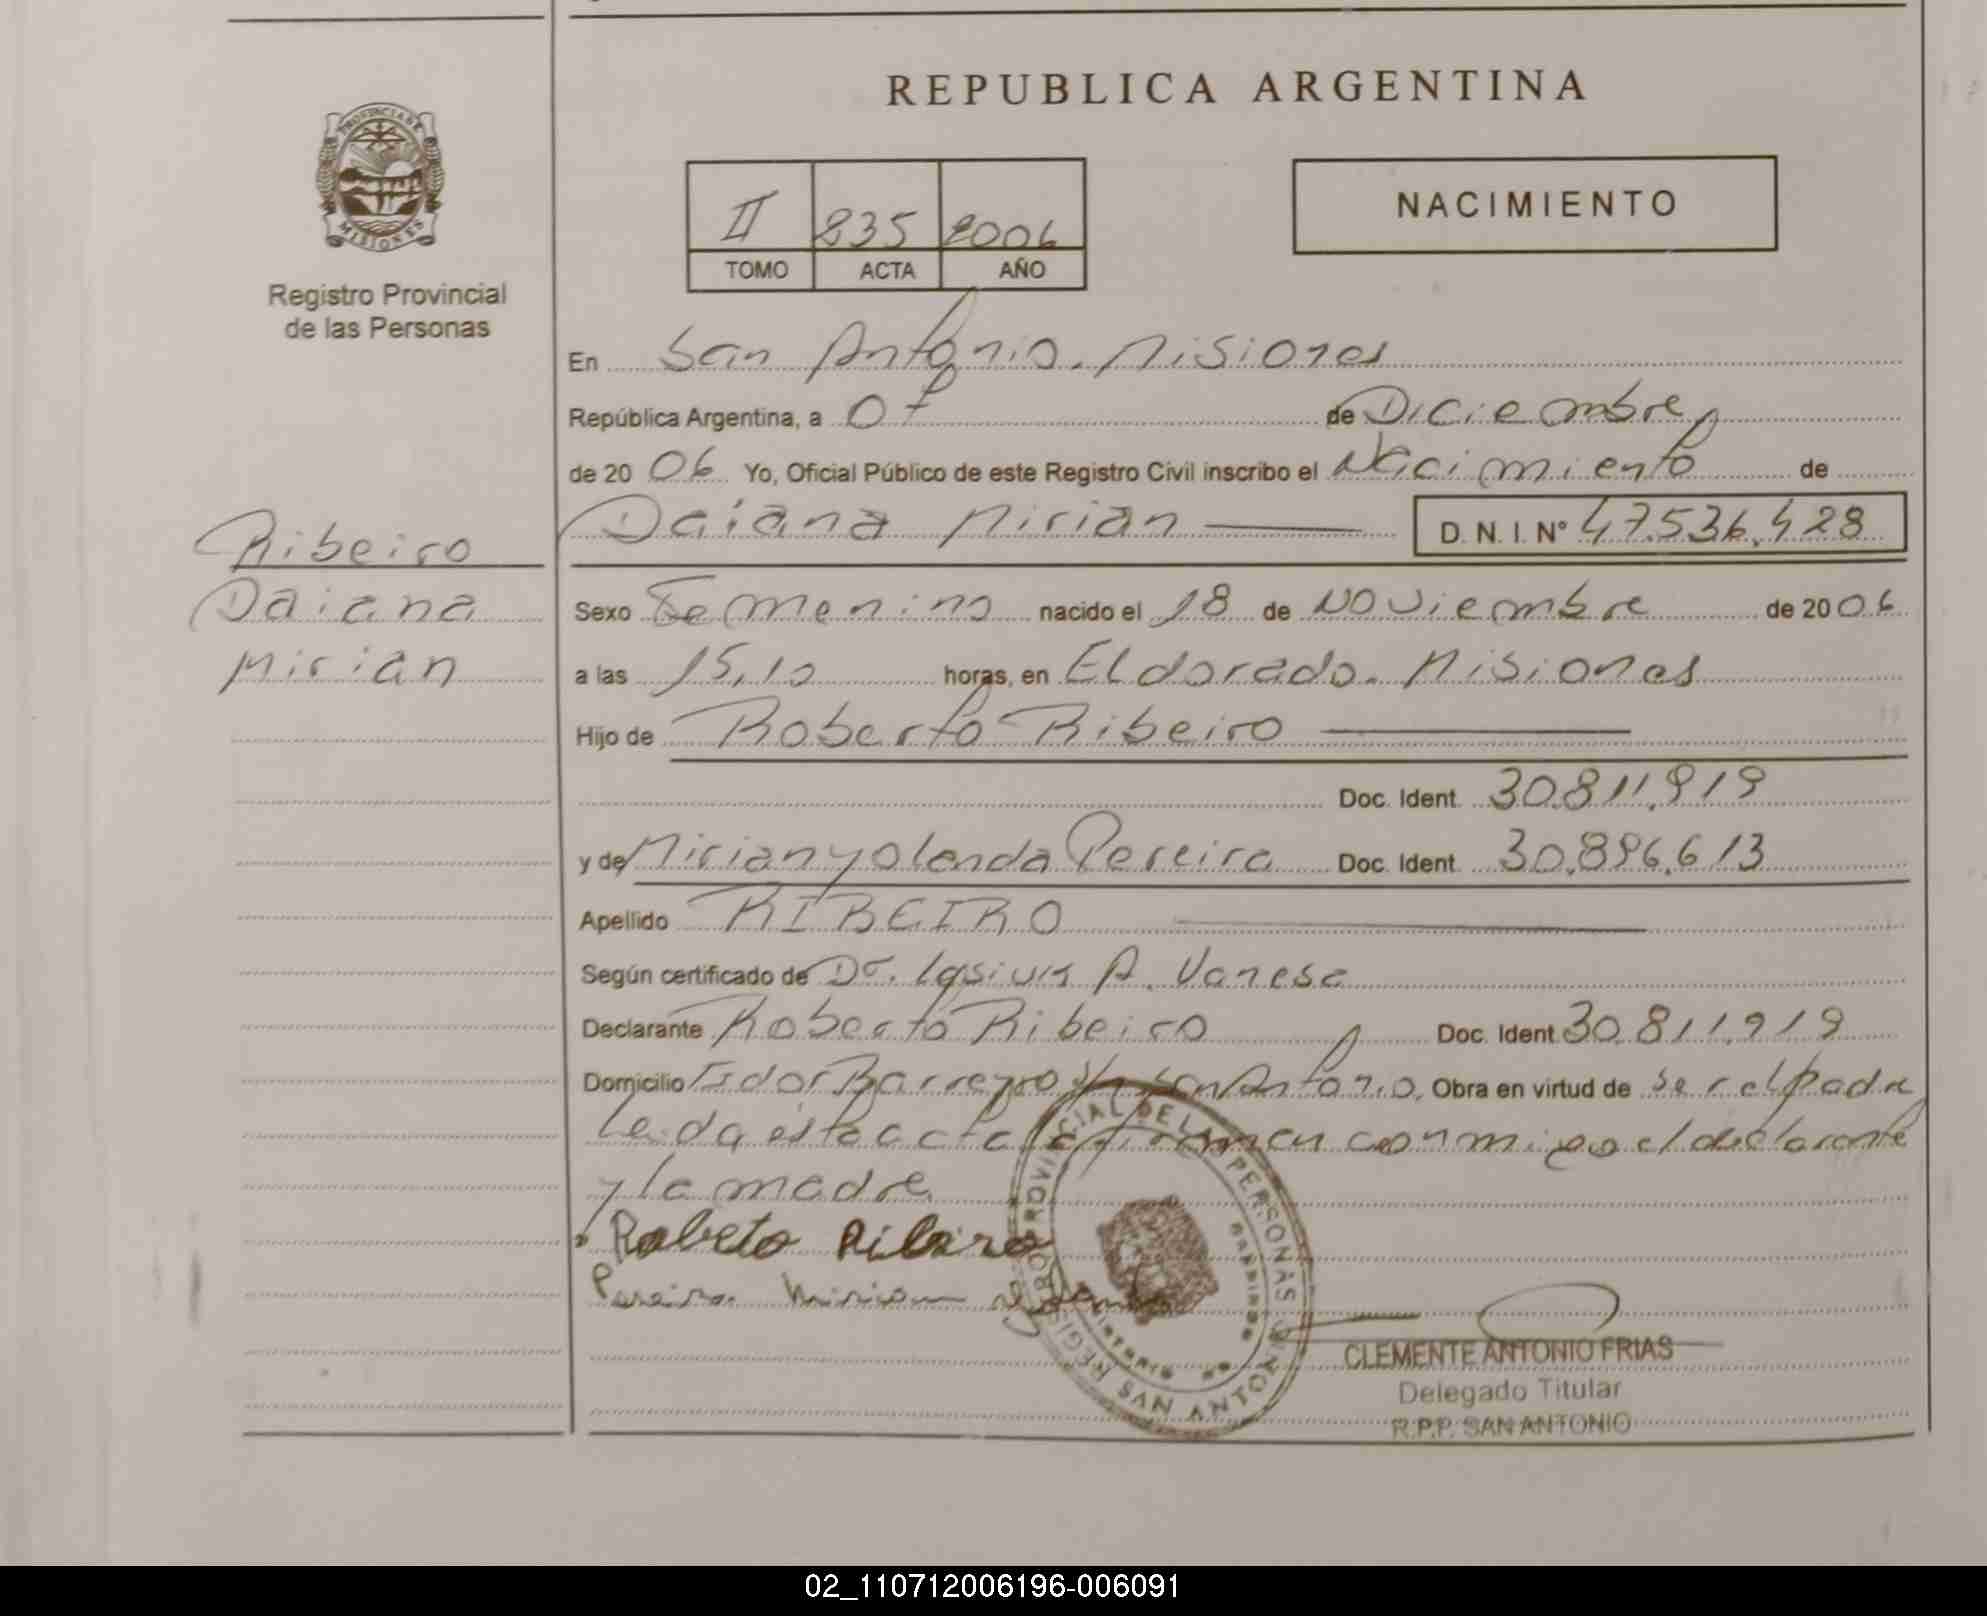 REPUBLICA ARGENTINA
PROVINCIA DE
MISIONES
Registro Provincial
de las Personas
II 235 2006
TOMO ACTA AÑO
NACIMIENTO
En San Antonio. Misiones
República Argentina, a 07 de Diciembre
de 2006 Yo, Oficial Público de este Registro Civil inscribo el Nacimiento de
Daiana Mirian D. N. I. Nº 47.536.428
Ribeiro
Daiana
Mirian
Sexo Femenino nacido el 18 de Noviembre de 2006
a las 15,10 horas, en Eldorado. Misiones
Hijo de Roberto Ribeiro
Doc. Ident. 30.811.919
y de Mirian yolanda Pereira Doc. Ident. 30.896.613
Apellido RIBEIRO
Según certificado de Dr. A. Vanesa
Declarante Roberto Ribeiro Doc. Ident. 30.811.919
Domicilio Barreyro s/n San Antonio, Obra en virtud de ser el padre
Leida esta acta la firman conmigo el declarante
y la madre
Robeto Ribero
Pereira Miriam
REGISTRO PROVINCIAL DE LAS PERSONAS
SAN ANTONIO
CLEMENTE ANTONIO FRIAS
Delegado Titular
R.P.P. SAN ANTONIO
02_110712006196-006091